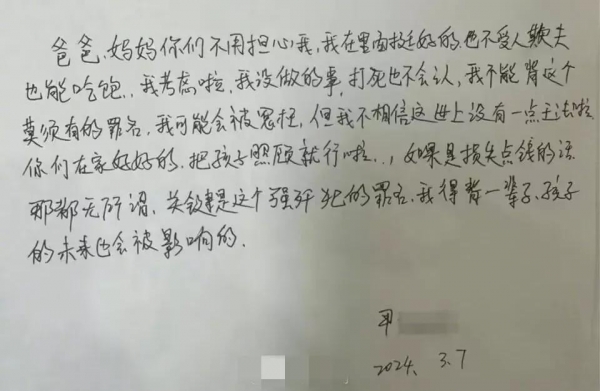 爸爸、妈妈你们不用担心我,我在里面挺好的,也不受人欺夫
也能吃饱..我考虑啦,我没做的事,打死也不会认,我不能背这个
莫须有的罪名,我可能会被冤枉,但我不相信这世上没有一点王法啦
你们在家好好的.把孩子照顾就行啦..,如果是损失点钱的话
那都无所谓,关键是这个强歼犯的罪名.我得背一辈子、孩子
的未来也会被影响的.
甲
2024. 3.7